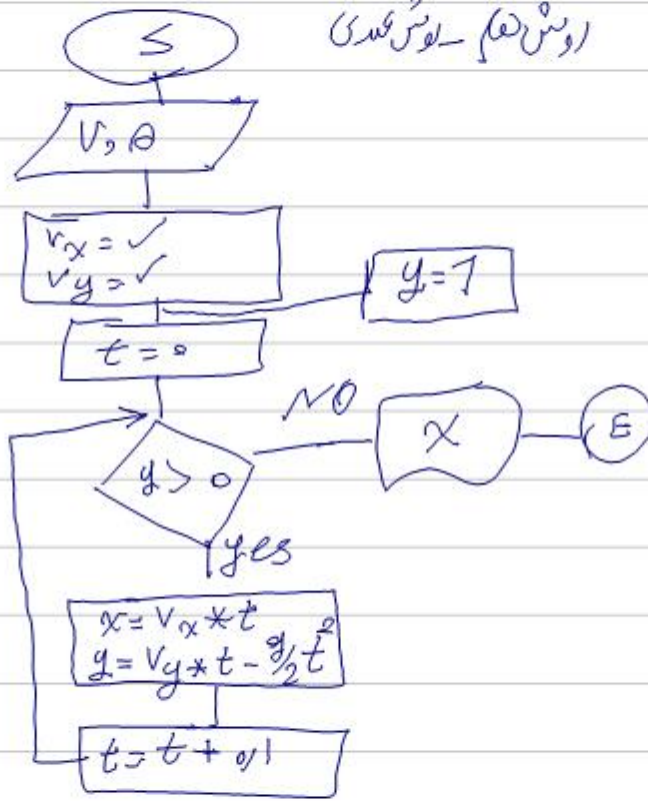 روش دهم - روش عددی
S
V, θ
Vx = ✓
Vy = ✓
y=1
t = 0
y > 0
NO
X
E
yes
x = Vx * t
y = Vy * t - g/2 t²
t = t + 0,1